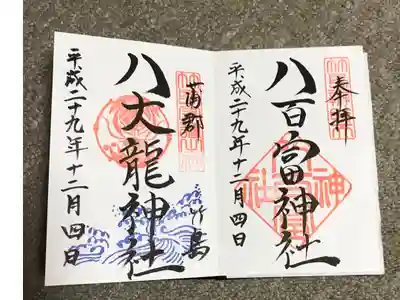 奉拝
八百富神社
平成二十九年十二月四日
蒲郡
八大龍神社
竹島
平成二十九年十二月四日